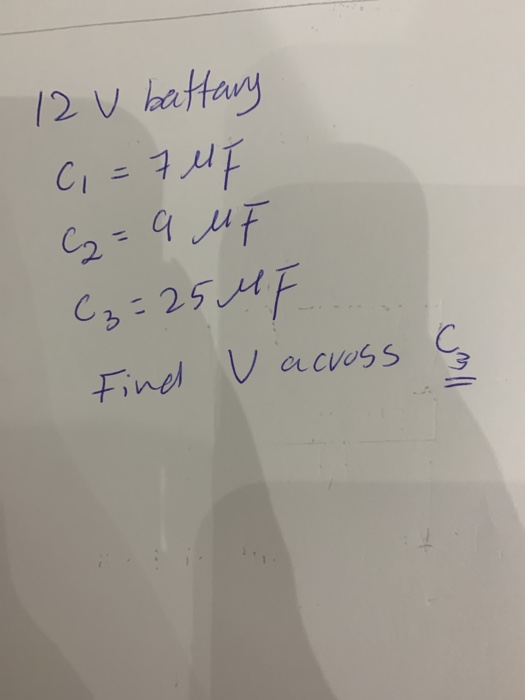 12 V battary
C₁ = 7 μF
C₂ = 9 μF
C₃ = 25 μF
Find V across C₃